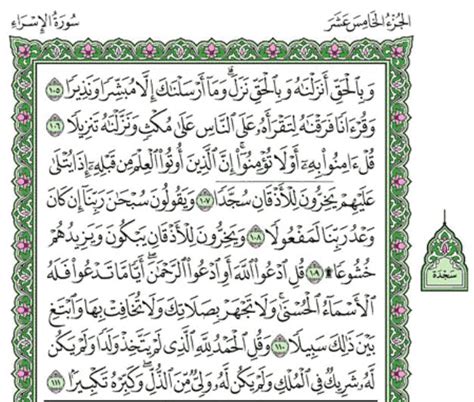 الجزء الخامس عشر
سورة الإسراء
وَبِالْحَقِّ أَنزَلْنَٰهُ وَبِالْحَقِّ نَزَلَ ۗ وَمَا أَرْسَلْنَٰكَ إِلَّا مُبَشِّرًا وَنَذِيرًا ١٠٥
وَقُرْءَانًا فَرَقْنَٰهُ لِتَقْرَأَهُۥ عَلَى النَّاسِ عَلَىٰ مُكْثٍ وَنَزَّلْنَٰهُ تَنزِيلًا ١٠٦
قُلْ ءَامِنُوا بِهِۦٓ أَوْ لَا تُؤْمِنُوٓا ۚ إِنَّ الَّذِينَ أُوتُوا الْعِلْمَ مِن قَبْلِهِۦٓ إِذَا يُتْلَىٰ
عَلَيْهِمْ يَخِرُّونَ لِلْأَذْقَانِ سُجَّدًا ١٠٧ وَيَقُولُونَ سُبْحَٰنَ رَبِّنَآ إِن كَانَ
وَعْدُ رَبِّنَا لَمَفْعُولًا ١٠٨ وَيَخِرُّونَ لِلْأَذْقَانِ يَبْكُونَ وَيَزِيدُهُمْ
خُشُوعًا ۩ ١٠٩ قُلِ ادْعُوا اللَّهَ أَوِ ادْعُوا الرَّحْمَٰنَ ۖ أَيًّا مَّا تَدْعُوا فَلَهُ
الْأَسْمَآءُ الْحُسْنَىٰ ۚ وَلَا تَجْهَرْ بِصَلَاتِكَ وَلَا تُخَافِتْ بِهَا وَابْتَغِ
بَيْنَ ذَٰلِكَ سَبِيلًا ١١٠ وَقُلِ الْحَمْدُ لِلَّهِ الَّذِي لَمْ يَتَّخِذْ وَلَدًا وَلَمْ يَكُن
لَّهُۥ شَرِيكٌ فِي الْمُلْكِ وَلَمْ يَكُن لَّهُۥ وَلِيٌّ مِّنَ الذُّلِّ ۖ وَكَبِّرْهُ تَكْبِيرًا ١١١
سجدة